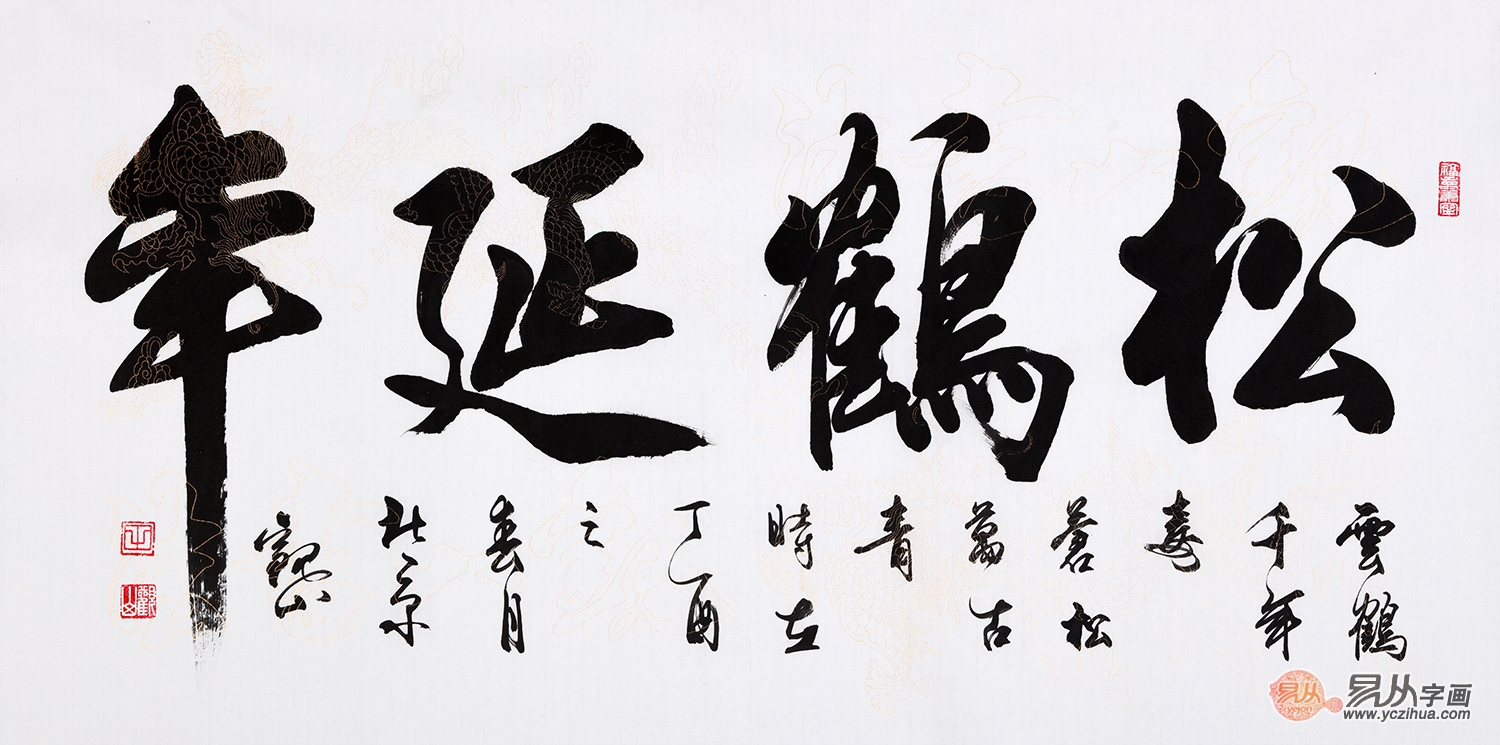 松鶴延年
雲鶴
千年
壽
蒼松
萬古
青
時在
丁酉
之
春月
北京
觀山
易从
yejon
易从字画
www.yczihua.com